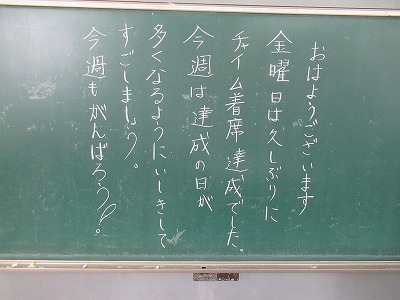 おはようございます
金曜日は久しぶりに
チャイム着席達成でした。
今週は達成の日が
多くなるようにいしきして
すごしましょう。
今週もがんばろう!。